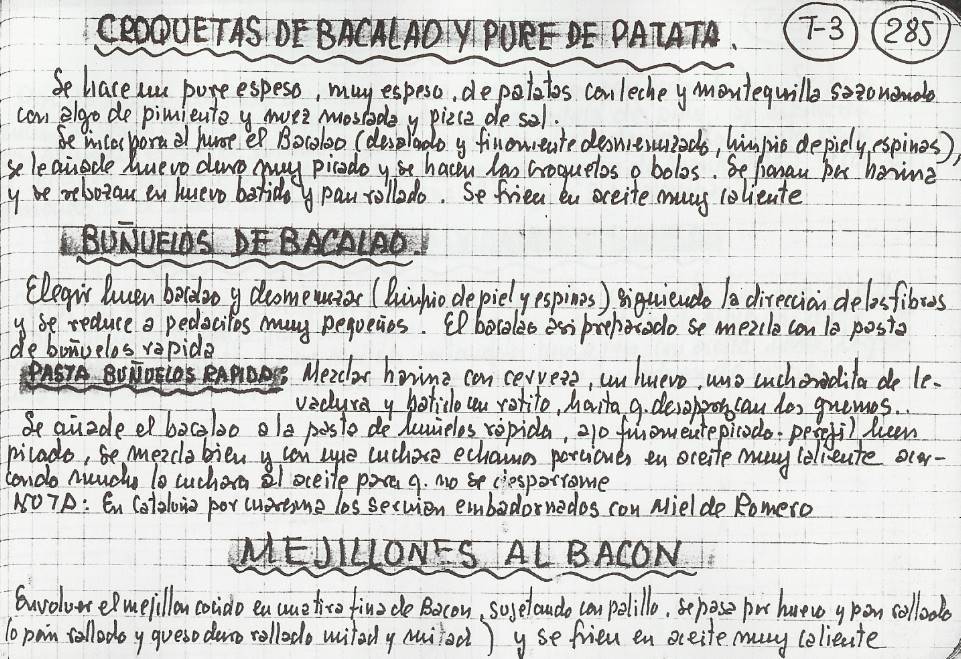 CROQUETAS DE BACALAO Y PURE DE PATATA. T-3 285
Se hace un pure espeso, muy espeso, de patatas con leche y mantequilla sazonando
con algo de pimienta y nuez moscada y pizca de sal.
Se incorpora al pure el Bacalao (desalado y finamente desmenuzado, limpio de piel y espinas),
se le añade huevo duro muy picado y se hacen las croquetas o bolas. Se pasan por harina
y se rebozan en huevo batido y pan rallado. Se frien en aceite muy caliente
BUÑUELOS DE BACALAO.
Elegir buen bacalao y desmenuzar (limpio de piel y espinas) siguiendo la direccion de las fibras
y se reduce a pedacitos muy pequeños. El bacalao asi preparado se mezcla con la pasta
de buñuelos rapida
PASTA BUÑUELOS RAPIDA: Mezclar harina con cerveza, un huevo, una cucharadita de le-
vadura y batirlo un ratito, hasta q. desaparezcan los grumos..
Se añade el bacalao a la pasta de buñuelos rápida, ajo finamente picado. perejil buen
picado, se mezcla bien y con una cuchara echamos porciones en aceite muy caliente acer-
cando mucho la cuchara al aceite para q. no se desparrame
NOTA: En Cataluña por cuaresma los servian embadornados con Miel de Romero
MEJILLONES AL BACON
Envolver el mejillon cocido en una tira fina de Bacon, sujetando con palillo, se pasa por huevo y pan rallado
(o pan rallado y queso duro rallado mitad y mitad) y se frien en aceite muy caliente